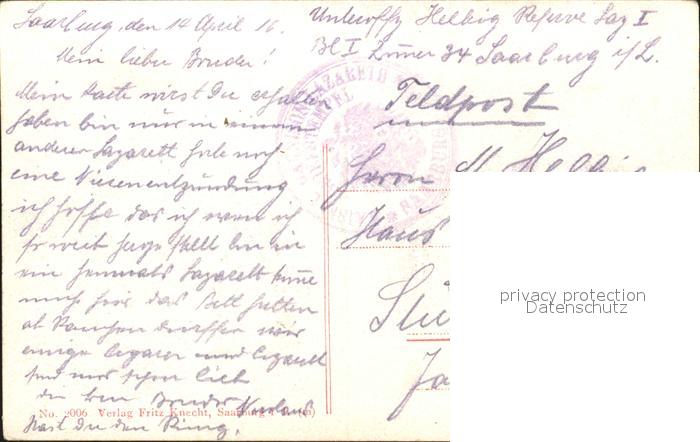 Saarburg, den 14 April 16.
Mein lieber Bruder!
Meine Karte wirst Du erhalten
haben bin nur in einem
anderen Lazarett habe noch
eine Nierenentzündung
ich hoffe das ich wenn ich
so weit hergestellt bin in
ein heimats Lazarett komme
muss hier das Bett hütten
ob Rauchen dürffen wir
einige Cigaren und Cigarett
sind mir schon lieb
Bruder
Hast Du den Ring.
Unteroffz Helbig Reserve Laz I
Bl I Zimer 34 Saarburg i/L.
Feldpost
Herrn M. Helbig
Haus
No. 2006 Verlag Fritz Knecht, Saarburg
privacy protection
Datenschutz